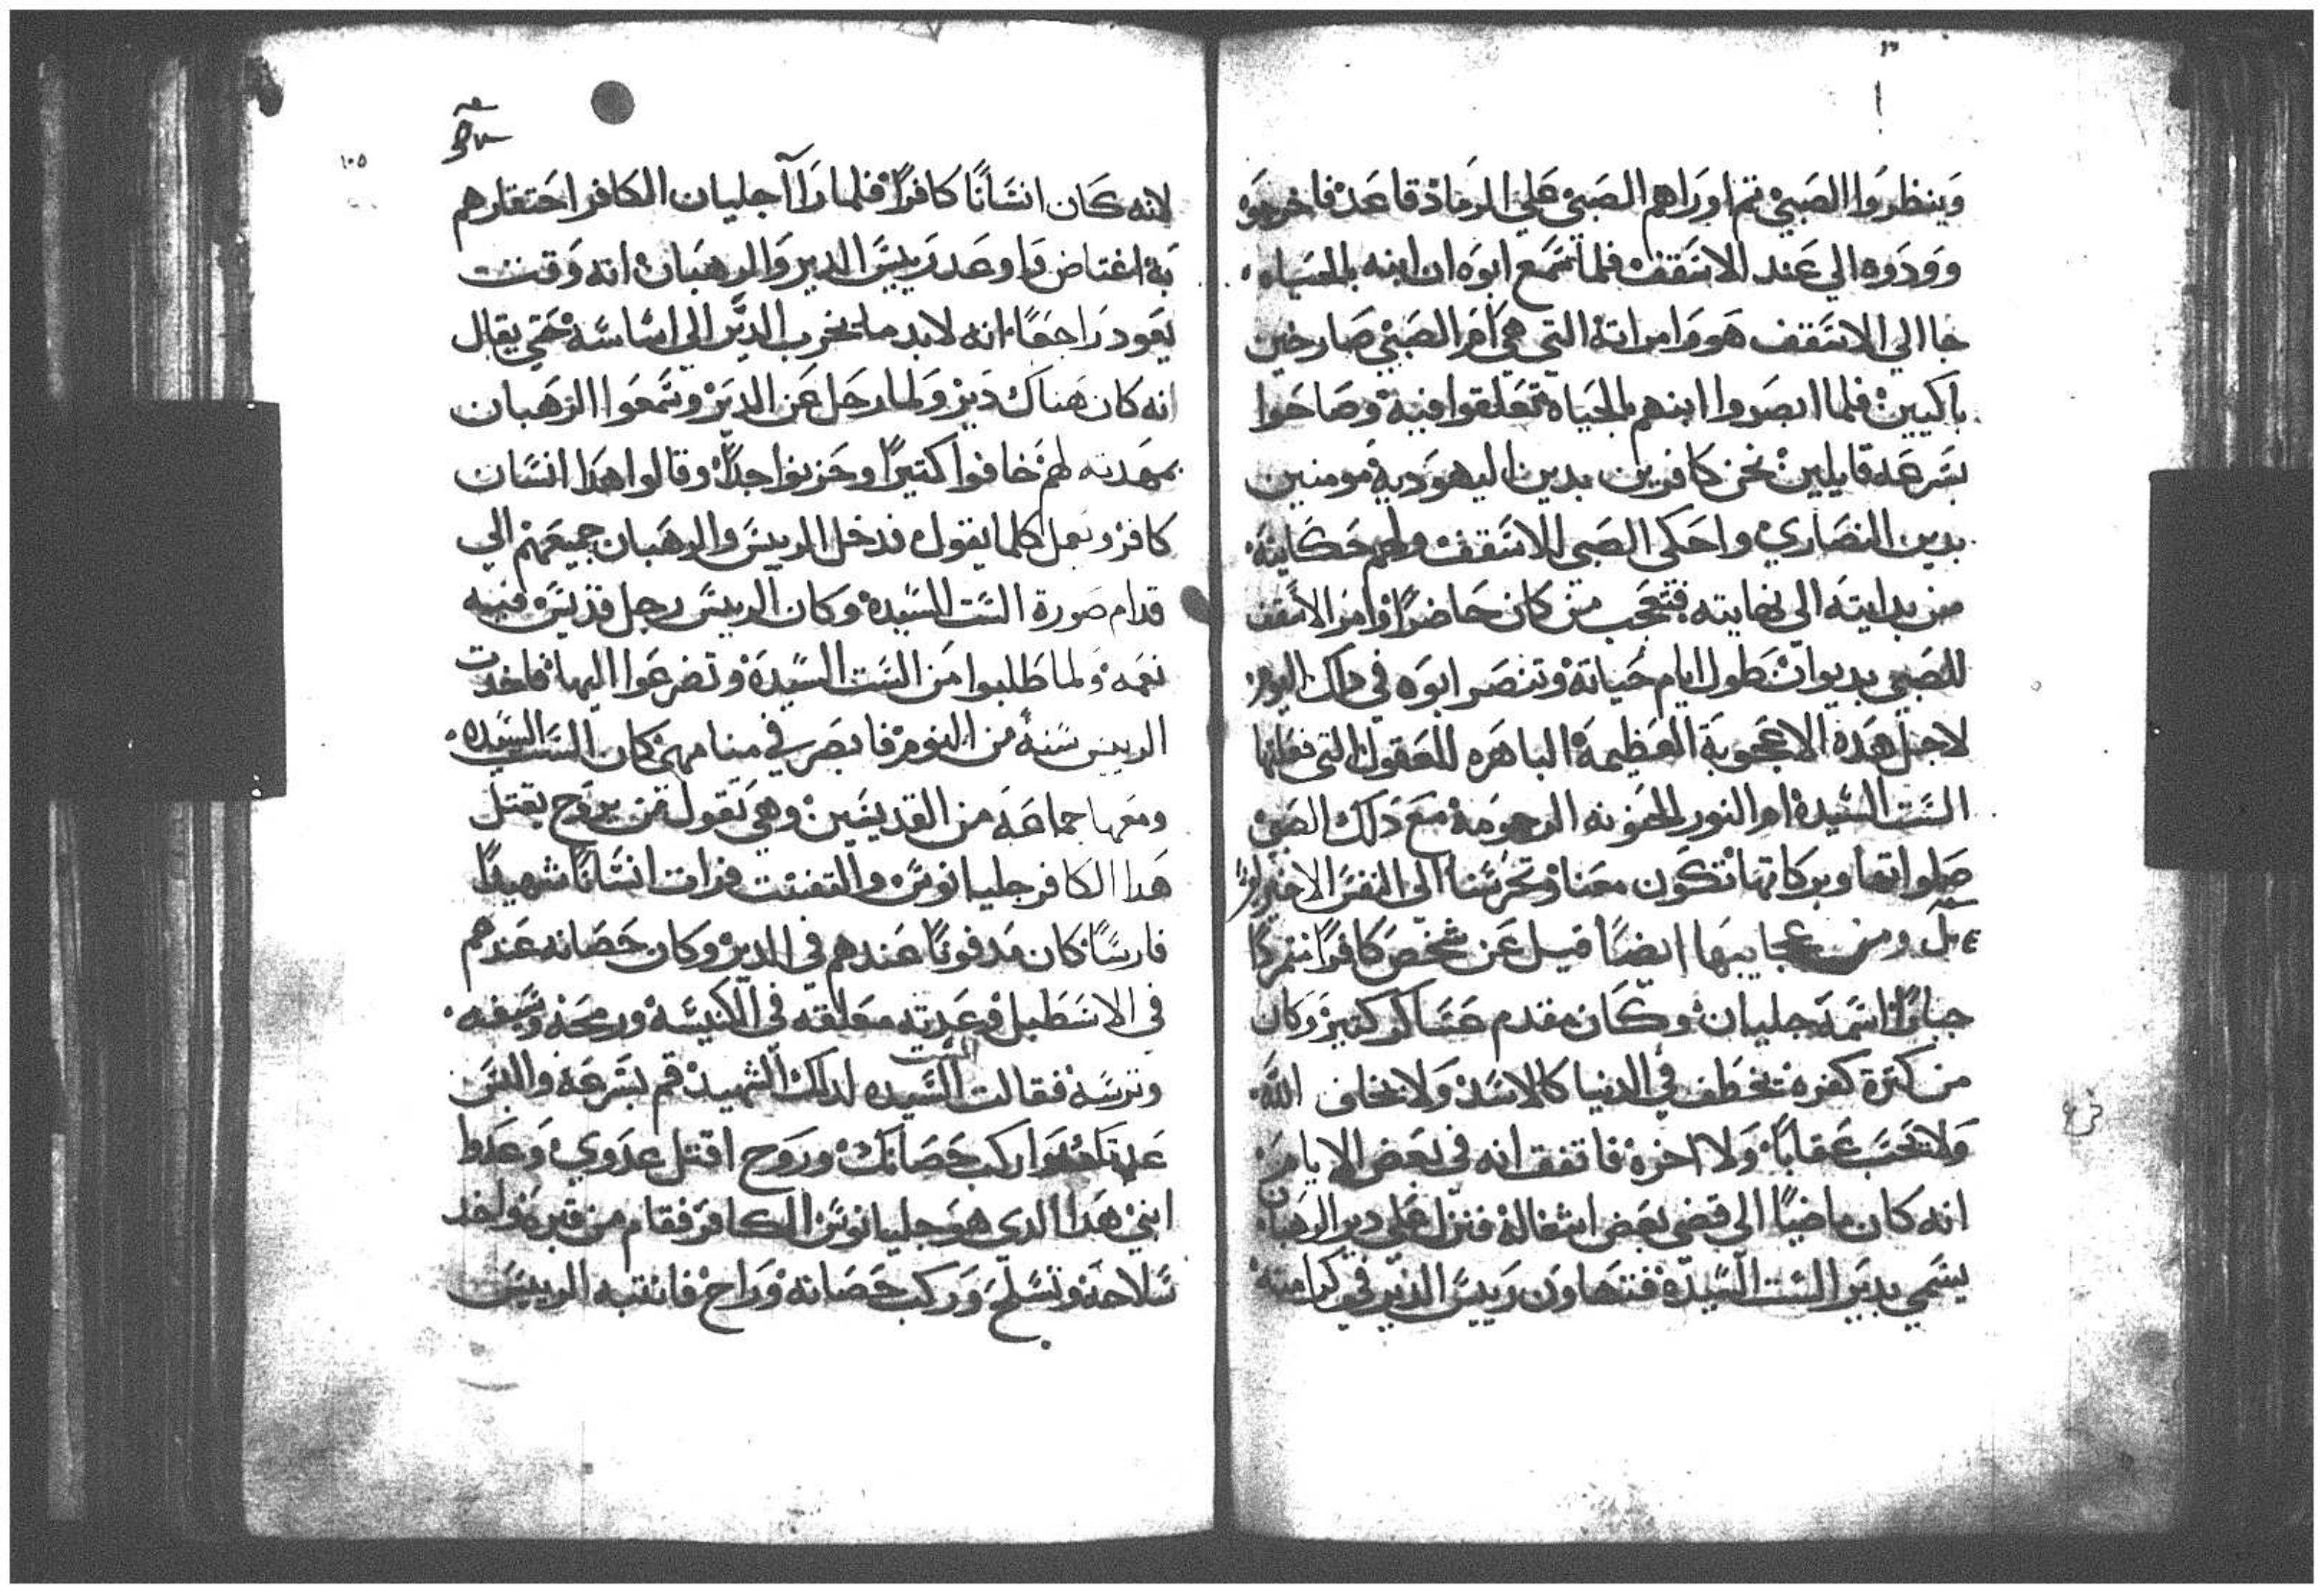 وينظروا الصبي تم اوراهم الصبي علي الرماد قاعد فاخرجوه
وودوه الي عند الاسقف فلما سمع ابوه ان ابنه بالحياه
جا الي الاسقف هو وامراته التي هي ام الصبي صارخين
باكيين فلما ابصروا ابنهم بالحياه تعلقوا فيه وصاحوا
بسرعه قايلين نحن كافرين بدين اليهوديه مومنين
بدين النصاري واحكي الصبي للاسقف ولهم حكايته
من بدايته الي نهايته فتعجب من كان حاضرا وامر الاسقف
للصبي بديوان طول ايام حياته وتنصر ابوه في دلك اليوم
لاجل هده الاعجوبة العظيمة الباهره للعقول التي فعلتها
الست السيدة ام النور الحنونه الرحومة مع دلك الصبي
صلواتها وبركاتها تكون معنا وتحرسنا الي النفس الاخير امين
ومن عجايبها ايضا قيل عن شخص كافرا متمردا
جبارا اسمه جليان وكان مقدم عساكر كتير وكان
من كترة كفره يخطف في الدنيا كالاسد ولا يخاف الله
ولا يحسب عقابا ولا اخرة فاتفق انه في بعض الايام
انه كان ماضيا الي قضي بعض اشغاله فنزل علي دير الرهبان
يسمي بدير الست السيدة فتهاون رييس الدير في كرامته
١٠٥
لانه كان انسانا كافرا فلما راا جليان الكافر احتقارهم
به اغتاض واوعد رييس الدير والرهبان انه وقت
يعود راجعا انه لابد ما يخرب الدير الي اساسه حتي يقال
انه كان هناك دير ولما رحل عن الدير وسمعوا الرهبان
بتهدته لهم خافوا كتيرا وحزنوا جدا وقالوا هدا انسان
كافر ويعمل كلما يقول فدخل الرييس والرهبان جميعهم الي
قدام صورة الست السيدة وكان الرييس رجل قديس فيه
نعمه ولما طلبوا من الست السيدة وتضرعوا اليها فاخدت
الرييس سنة من النوم فابصر في منامه كان الست السيده
ومعها جماعه من القديسين وهي تقول من يروح يقتل
هدا الكافر جليانوس والتفتت فرات انسانا شهيدا
فارسا كان مدفونا عندهم في الدير وكان حصانه عندهم
في الاسطبل وعدته معلقه في الكنيسه ورمحه وسيفه
وترسه فقالت الست السيده لدلك الشهيد قم بسرعه والبس
عدتك واركب حصانك وروح اقتل عدوي وعدو
ابني هدا الدي هو جليانوس الكافر فقام من قبره واخد
سلاحه وتسلح وركب حصانه وراح فانتبه الرييس